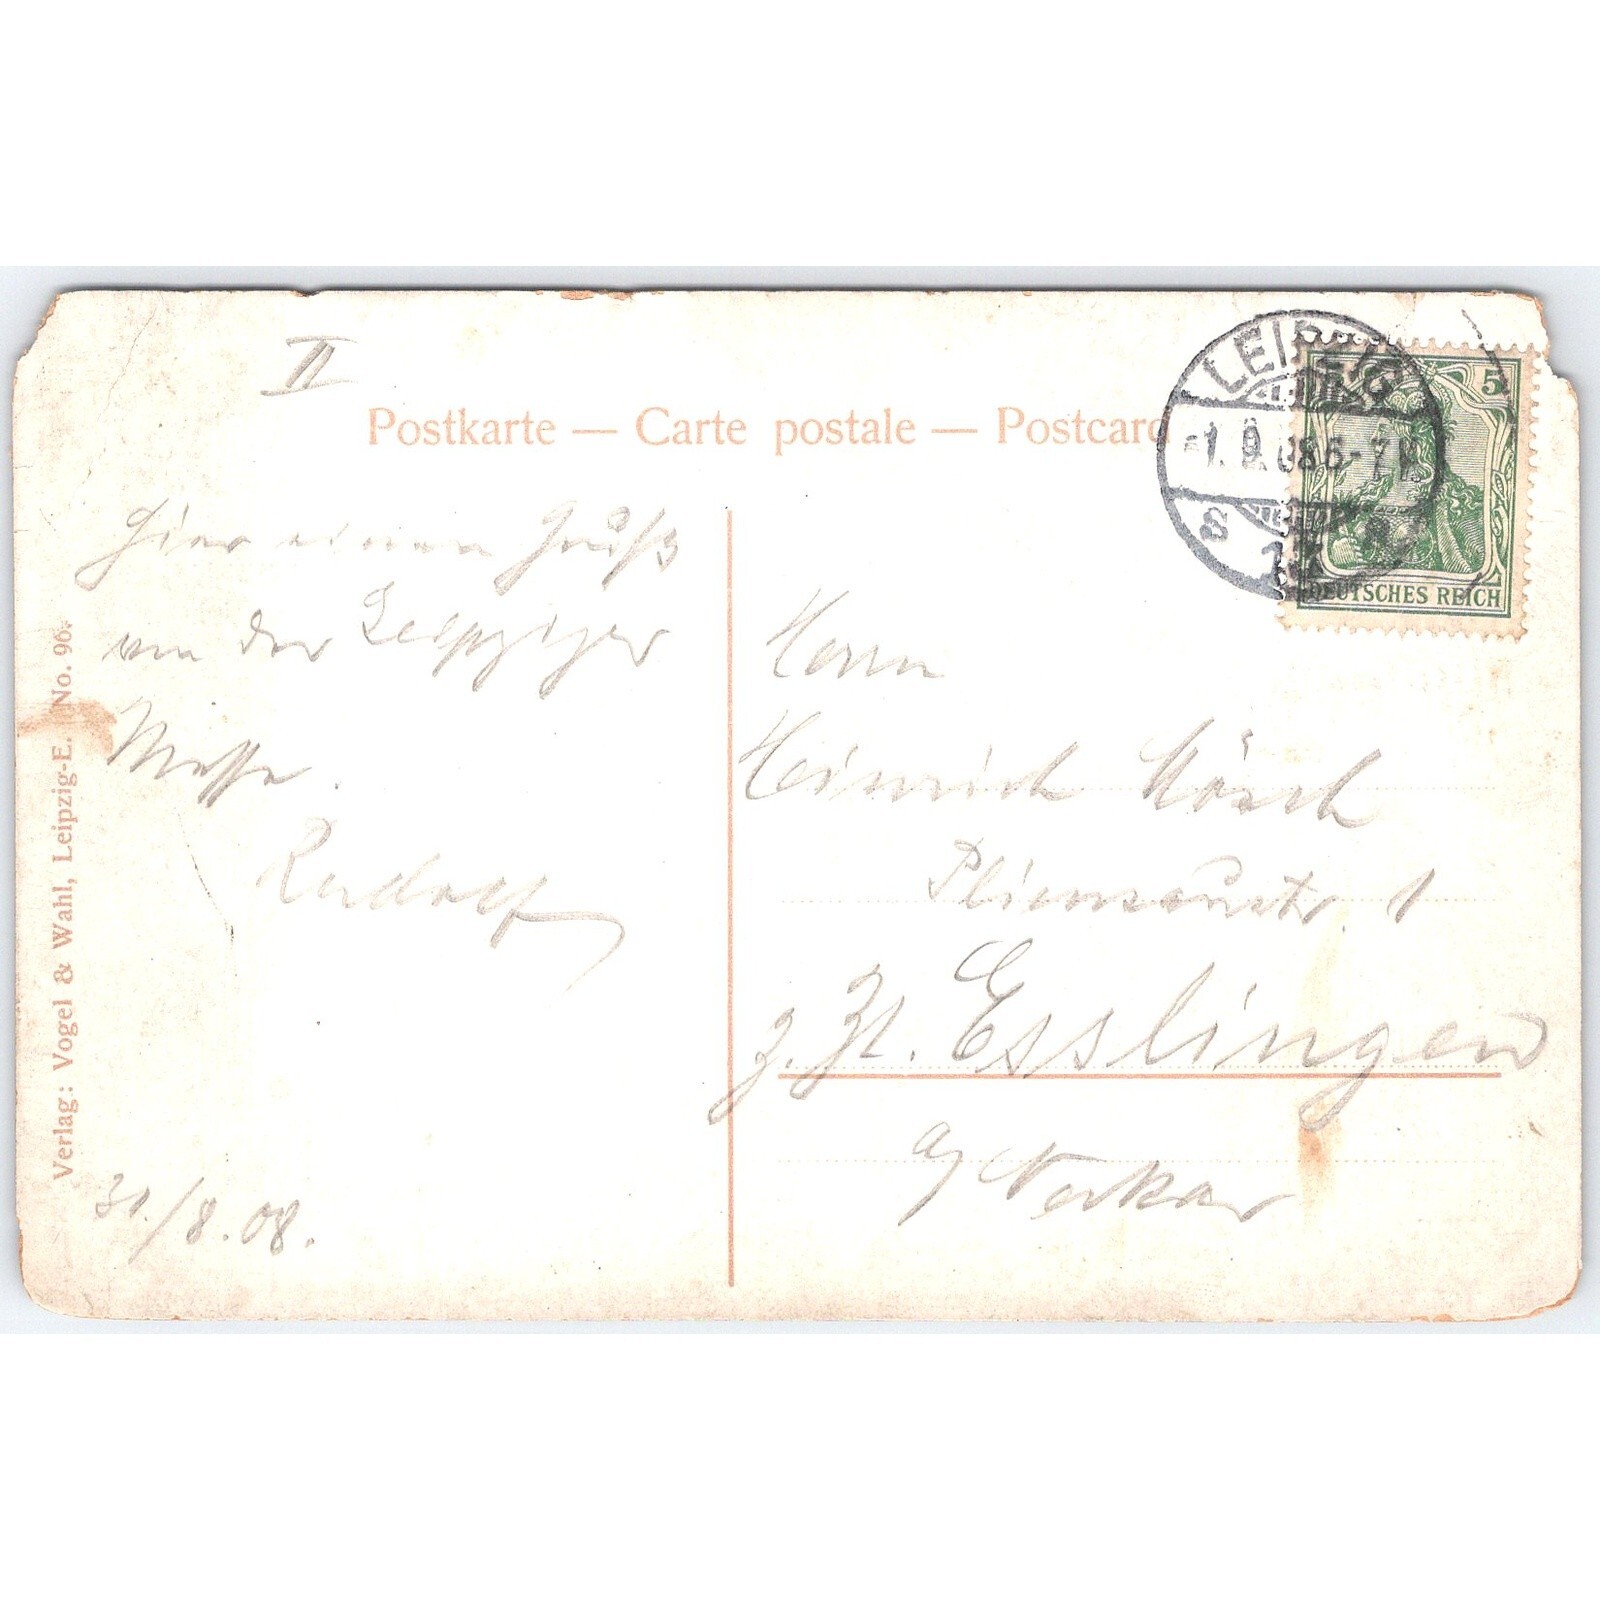 II
Postkarte — Carte postale — Postcard
LEIPZIG
1.9.08 6-7 N.
DEUTSCHES REICH
5
Hier einen Gruß
von der Leipziger
Messe.
Rudolf
31./8.08.
Herrn
Heinrich
Pliensaustr. 1
z. Zt. Esslingen
a/ Neckar
Verlag: Vogel & Wahl, Leipzig-E. No. 96.